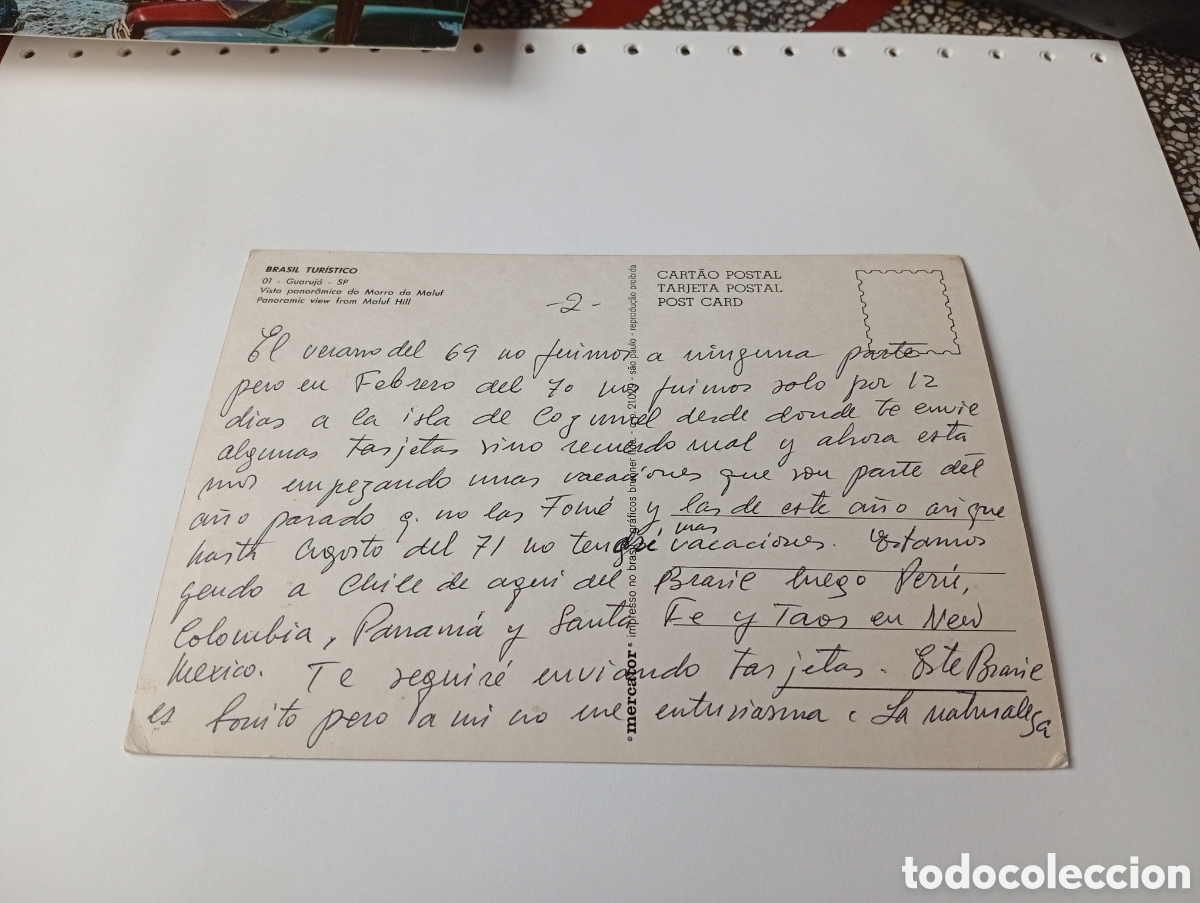 BRASIL TURÍSTICO
01 - Guarujá - SP
Vista panorâmica do Morro do Maluf
Panoramic view from Maluf Hill
-2-
CARTÃO POSTAL
TARJETA POSTAL
POST CARD
El verano del 69 no fuimos a ninguna parte
pero en Febrero del 70 nos fuimos solo por 12
dias a la isla de Cozumel desde donde te envie
algunas tarjetas sino recuerdo mal y ahora esta
mos empezando unas vacaciones que son parte del
año pasado q. no las tomé y las de este año asi que
hasta Agosto del 71 no tendré mas vacaciones. Estamos
yendo a Chile de aqui del Brasil luego Perú,
Colombia, Panamá y Santa Fe y Taos en New
Mexico. Te seguiré enviando tarjetas. Este Brasil
es bonito pero a mi no me entusiasma. La naturaleza
mercator impresso no brasil gráficos brunner são paulo - reprodução proibida
todocoleccion